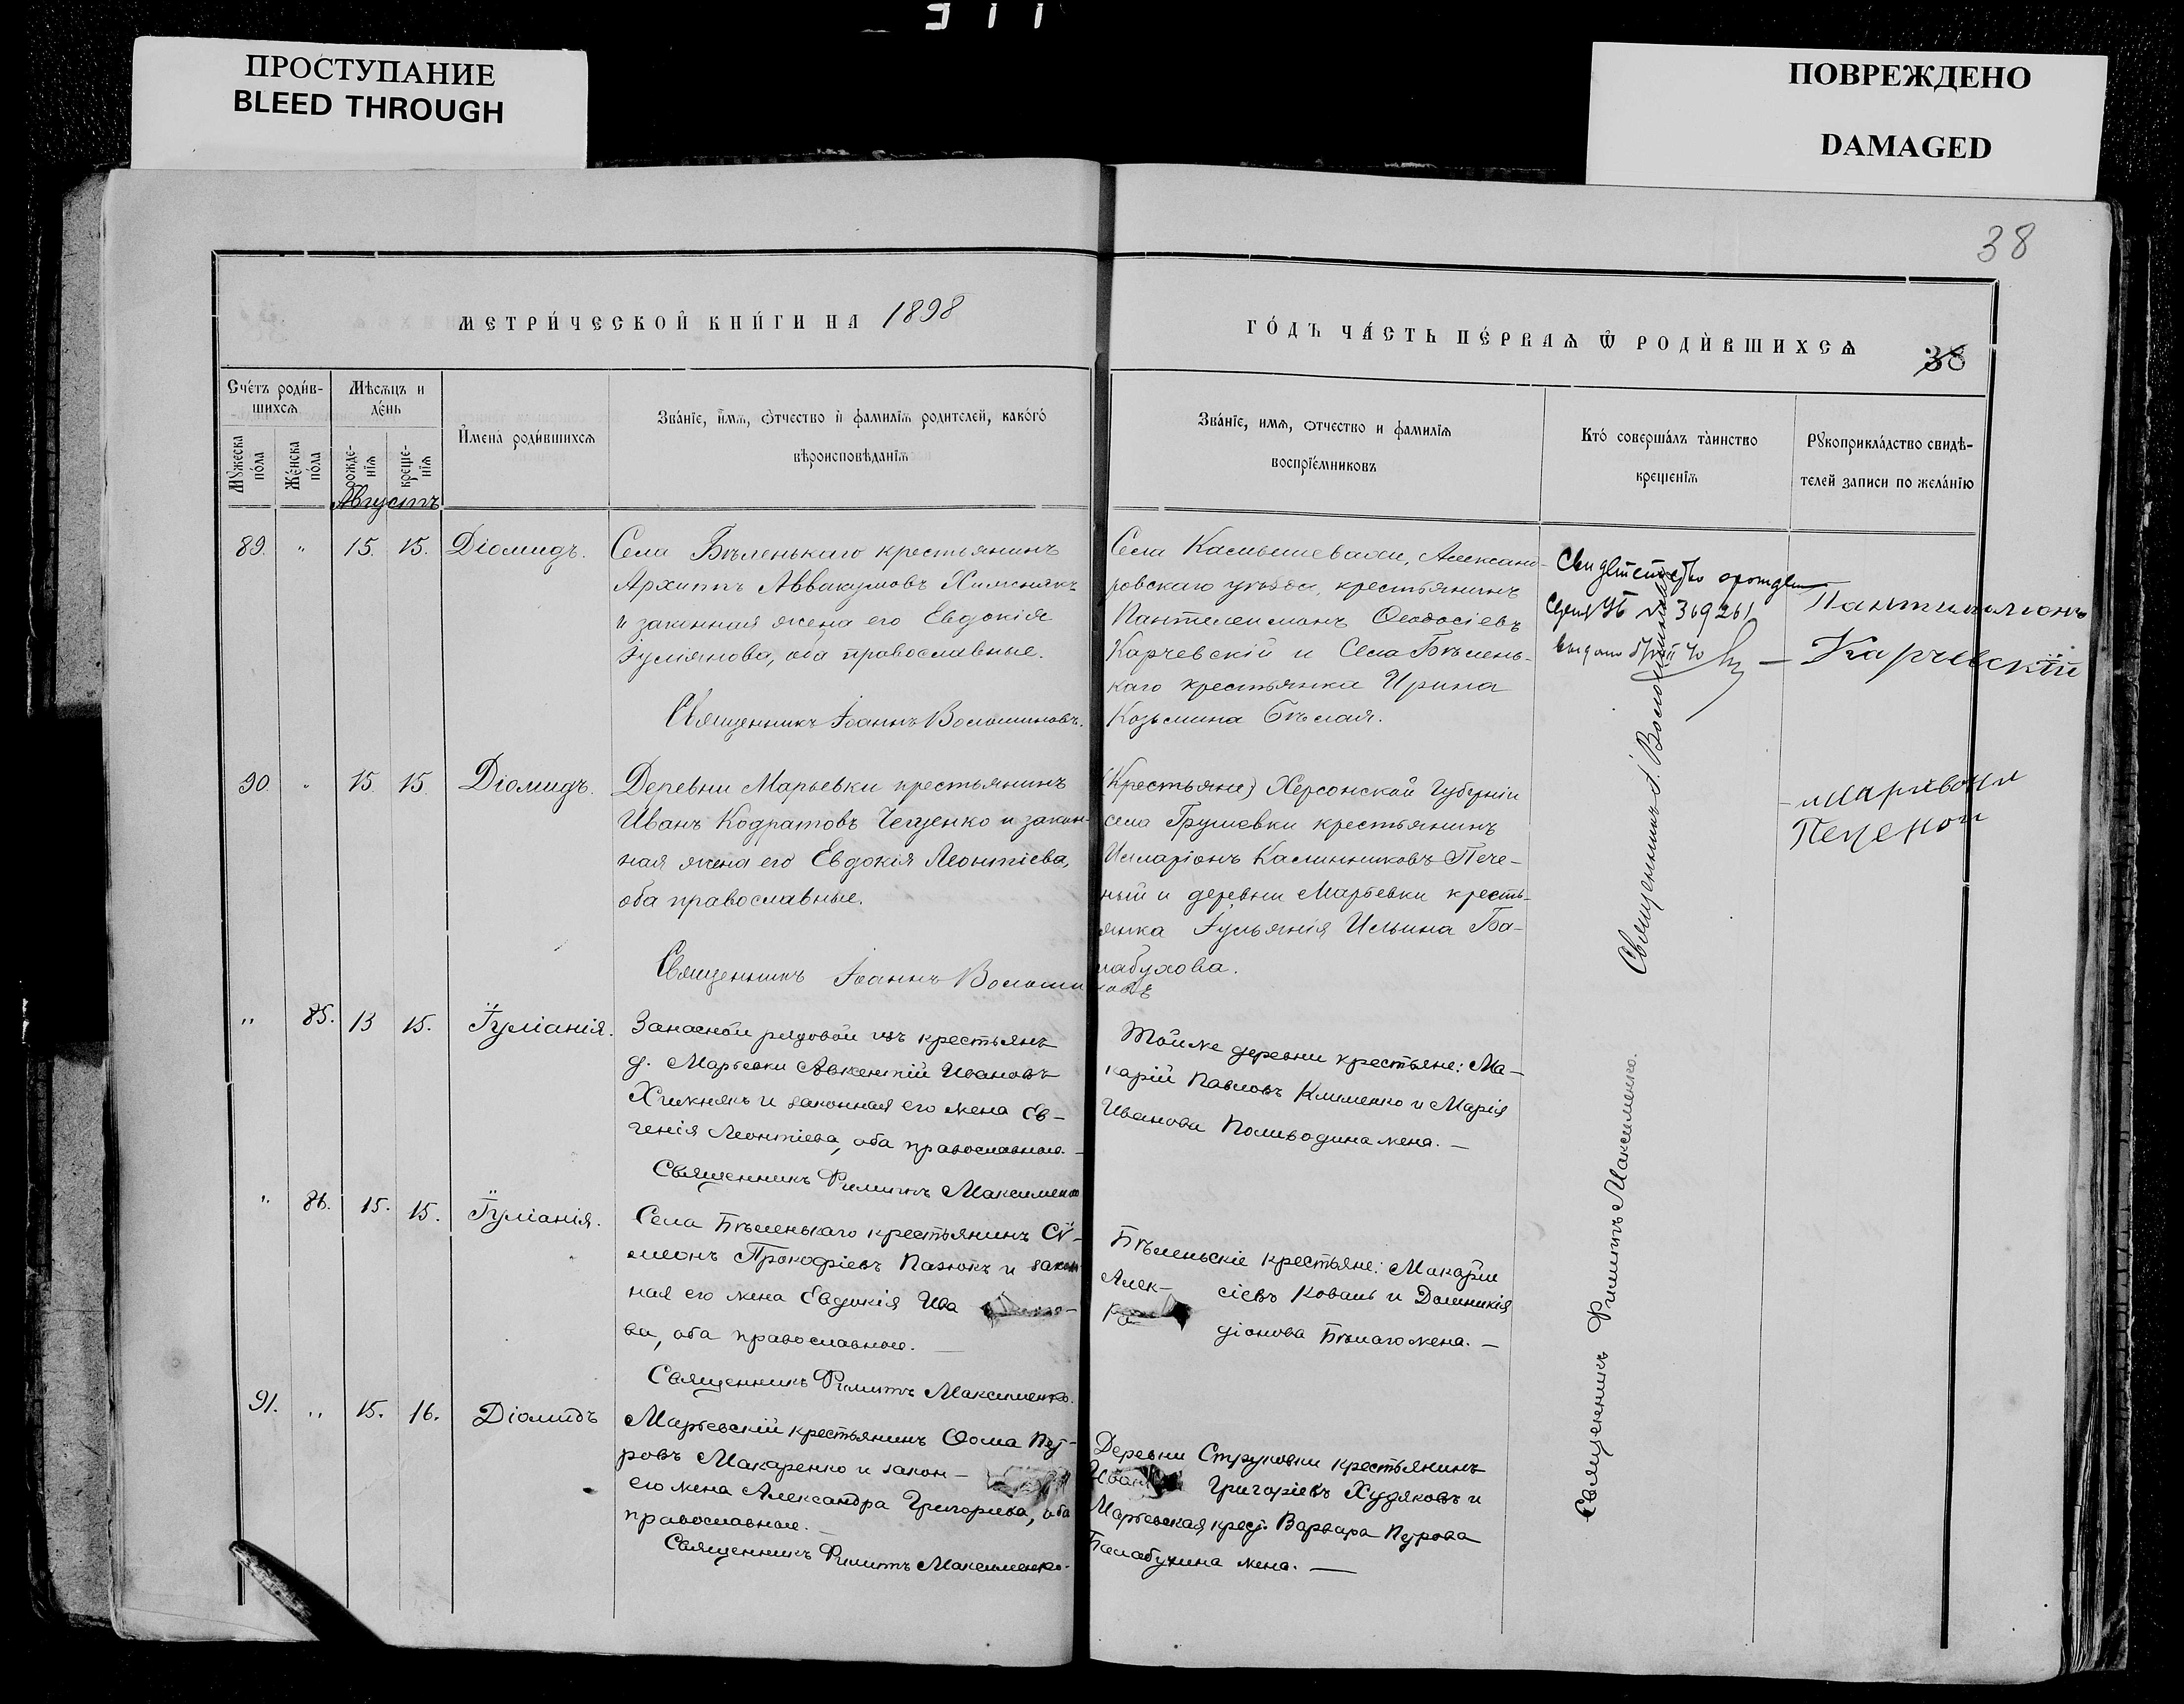 ПРОСТУПАНИЕ
BLEED THROUGH
ПОВРЕЖДЕНО
DAMAGED
38
МЕТРИ́ЧЕСКОЙ КНИ́ГИ НА 1898
ГО́ДЪ ЧА́СТЬ ПЕ́РВАѦ Ѿ РОДИ́ВШИХСѦ
38
Сче́тъ роди́в-
шихсѧ
Мѣсѧцъ и
де́нь
Мꙋ́жеска
по́ла
Же́нска
по́ла
рожде-
нїѧ
креще-
нїѧ
И҆мена̀ роди́вшихсѧ
Зва́нїе, и҆́мѧ, ѻ҆́тчество и҆ фамилїѧ родителей, како́гѡ́
вѣроисповѣ́данїѧ
Зва́нїе, имѧ, ѻтчество и фамилїѧ
воспрїе́мниковъ
Кто́ соверша́лъ та̀инство
креще́нїѧ
Рꙋкоприкла́дство свидѣ-
телей записи по жела́нїю
Августъ
89. " 15. 15. Діомидъ.
Села Бѣленькаго крестьянинъ
Архиппъ Аввакумовъ Хименякъ
и законная жена его Евдокія
Іуліянова, оба православные.
Священникъ Іоаннъ Волошиновъ.
Села Камышевахи, Александ-
ровскаго уѣзда, крестьянинъ
Пантелеимонъ Ѳеодосіевъ
Карчевскій и Села Бѣлень-
каго крестьянка Ирина
Козьмина Бѣлая.
№ 369261
Пантилимонъ
Карчевскій
90. " 15. 15. Діомидъ.
Деревни Марьевки крестьянинъ
Иванъ Кодратовъ и закон-
ная жена его Евдокія Леонтіева,
оба православные.
Священникъ Іоаннъ Волошиновъ
(Крестьяне) Херсонской Губерніи
села Грушевки крестьянинъ
Илларіонъ Калинниковъ Пече-
ный и деревни Марьевки кресть-
янка Іульянія Ильина Ба-
лабухова.
Священникъ І. Волошиновъ
" 85. 13 15. Іуліанія.
Запасной рядовой изъ крестьянъ
д. Марьевки Авксентій Ивановъ
Химнякъ и законная его жена Ев-
генія Леонтіева, оба православные. –
Священникъ Филиппъ Максименко
Тойже деревни крестьяне: Ма-
карій Павловъ Клименко и Марія
Иванова Поливодина жена. –
" 86. 15. 15. Іуліанія.
Села Бѣленькаго крестьянинъ Сѵ-
меонъ Прокофіевъ Пазюкъ и закон
ная его жена Евдокія Ива
ва, оба православные. –
Священникъ Филиппъ Максименко.
Бѣленьскіе крестьяне: Макарій
Алек- сіевъ Коваль и Домникія
діонова Бѣлаго жена. –
Священникъ Филиппъ Максименко.
91. " 15. 16. Діомидъ
Марьевскій крестьянинъ Ѳома Пет-
ровъ Макаренко и закон-
его жена Александра Григорьева, оба
православные. –
Священникъ Филиппъ Максименко.
Деревни Струковки крестьянинъ
Иван Григоріевъ Худяковъ и
Марьевская крест. Варвара Петрова
Балабухина жена. –